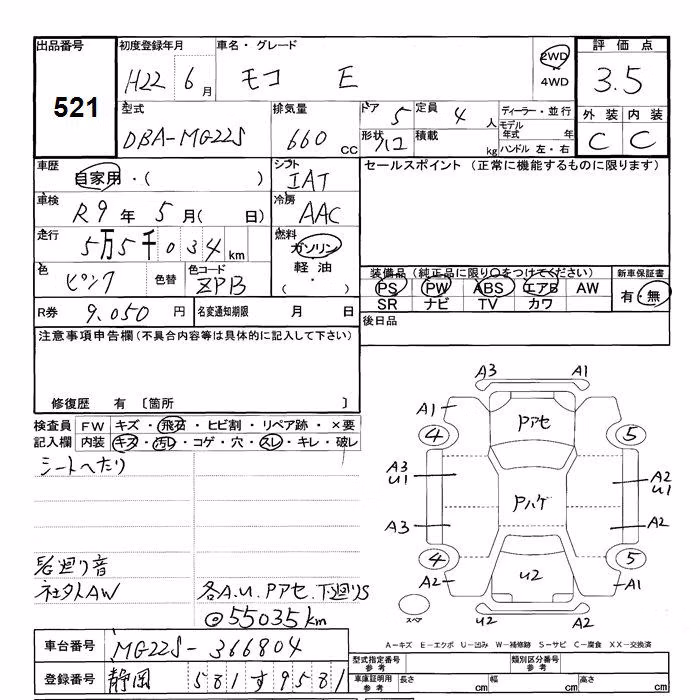 出品番号 初度登録年月 車名・グレード 2WD 評価点
521 H22 6月 モコ E 4WD 3.5
型式 排気量 ドア 5 定員 4人 ディーラー・並行 外装 内装
DBA-MG22S 660cc 形状 ハコ 積載 kg モデル年式 年 C C
ハンドル 左・右
車歴 自家用・( ) シフト IAT セールスポイント(正常に機能するものに限ります)
車検 R9年 5月( 日) 冷房 AAC
走行 5万5千034km 燃料 ガソリン
軽油
( ・ )
色 ピンク 色替 色コード ZPB 装備品(純正品に限り○をつけてください) 新車保証書
PS PW ABS エアB AW 有・無
SR ナビ TV カワ
R券 9,050円 名変通知期限 月 日 後日品
注意事項申告欄(不具合内容等は具体的に記入して下さい)
修復歴 有 〔箇所 〕
検査員 FW キズ・飛石・ヒビ割・リペア跡・×要
記入欄 内装 キズ・汚レ・コゲ・穴・スレ・キレ・破レ
シートへたり
廻り音
社外AW 各A.U.Pアセ.下廻りS
◎55035km
A3 A1
A1 Pアセ
4 5
A3 U1 A2 U1
Pハゲ
A3 A2
4 5
A2 U2 A1
スペア U2 A2
A-キズ E-エクボ U-凹み W-補修跡 S-サビ C-腐食 XX-交換済
車台番号 MG22S-366804 型式指定番号 参考 類別区分番号 参考
登録番号 静岡 581 す 9581 車庫証明用 参考 長さ cm 幅 cm 高さ cm